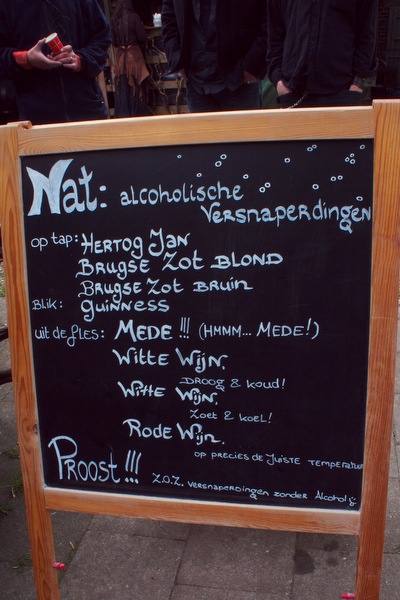 Nat: alcoholische
Versnaperdingen
op tap: Hertog Jan
Brugse Zot BLOND
Brugse Zot Bruin
Blik: Guinness
uit de fles: Mede!!! (Hmmm... Mede!)
Witte Wijn,
DROOG & koud!
Witte Wijn,
Zoet & koel!
Rode Wijn.
op precies de juiste temperatuur
Proost!!! Z.O.Z. versnaperdingen zonder Alcohol